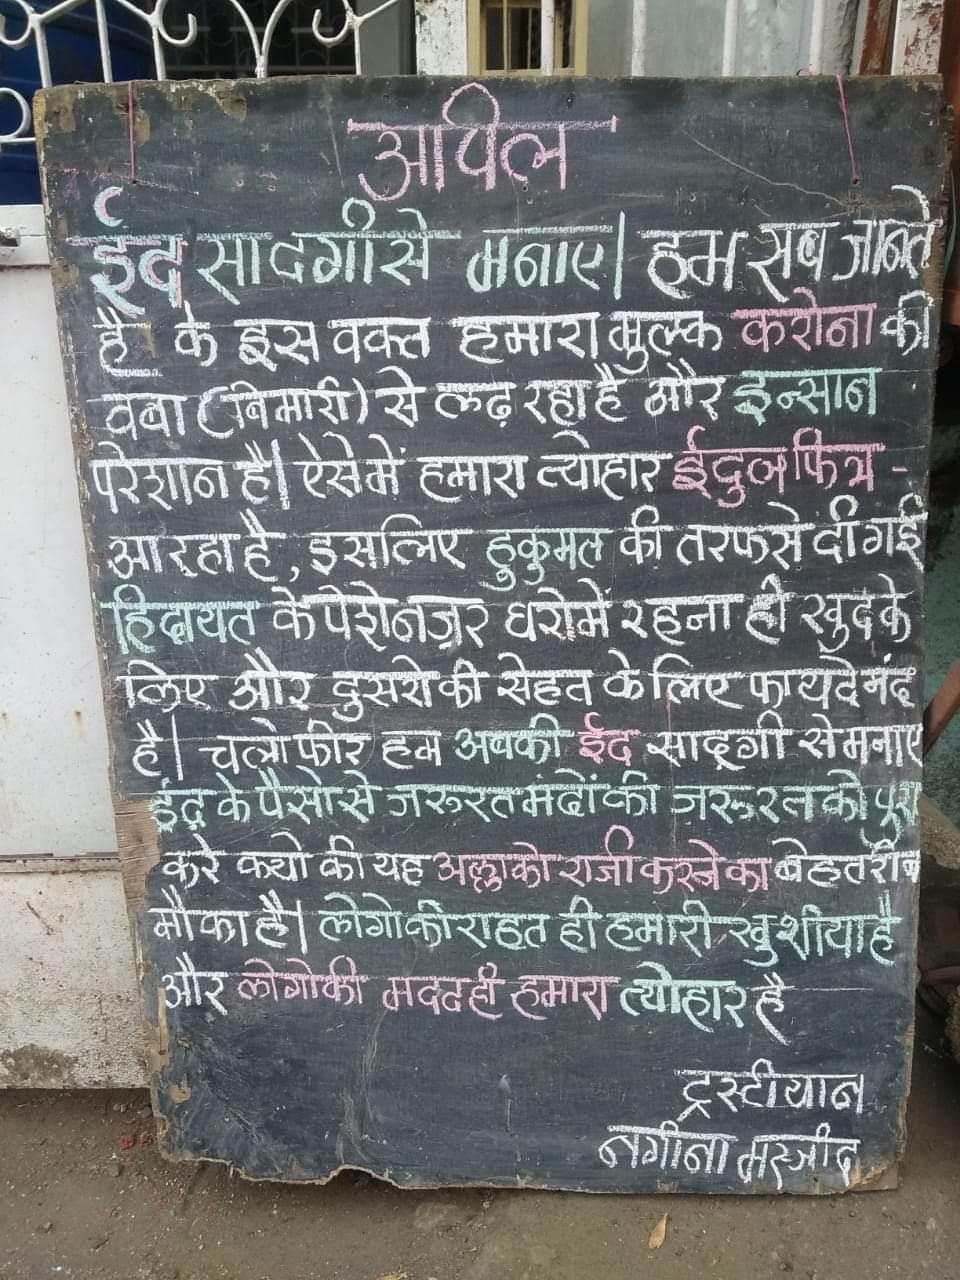 अपिल
ईद सादगी से मनाए। हम सब जानते
है के इस वक्त हमारा मुल्क करोना की
ववा (बिमारी) से लढ़ रहा है और इन्सान
परेशान है। ऐसे में हमारा त्योहार ईदुल फित्र -
आ रहा है, इसलिए हुकुमत की तरफ से दी गई
हिदायत के पेशे नज़र घरो में रहना ही खुद के
लिए और दुसरो की सेहत के लिए फायदे मंद
है। चलो फीर हम अबकी ईद सादगी से मनाए
ईद के पैसो से जरूरत मंदों की जरूरत को पुरा
करे क्यो की यह अल्ला को राजी करने का बेहतरीन
मौका है। लोगो की राहत ही हमारी खुशीया है
और लोगो की मदद ही हमारा त्योहार है
ट्रस्टीयान
नगीना मस्जीद